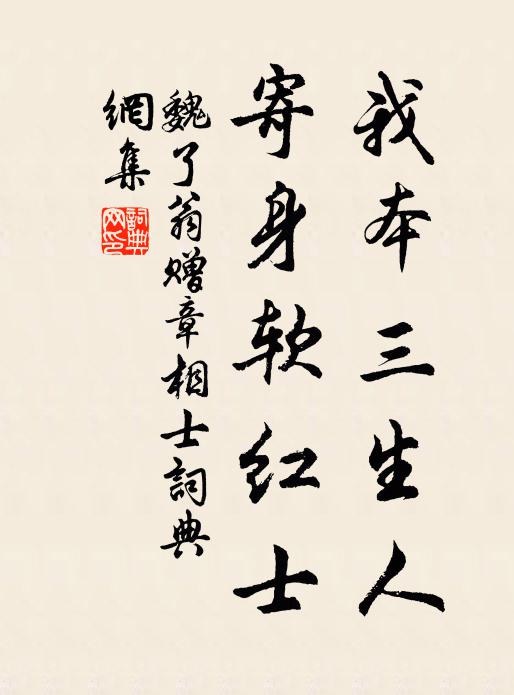 我本三生人
寄身软红士
魏了翁赠章相士詞典
網集
詞典
网印